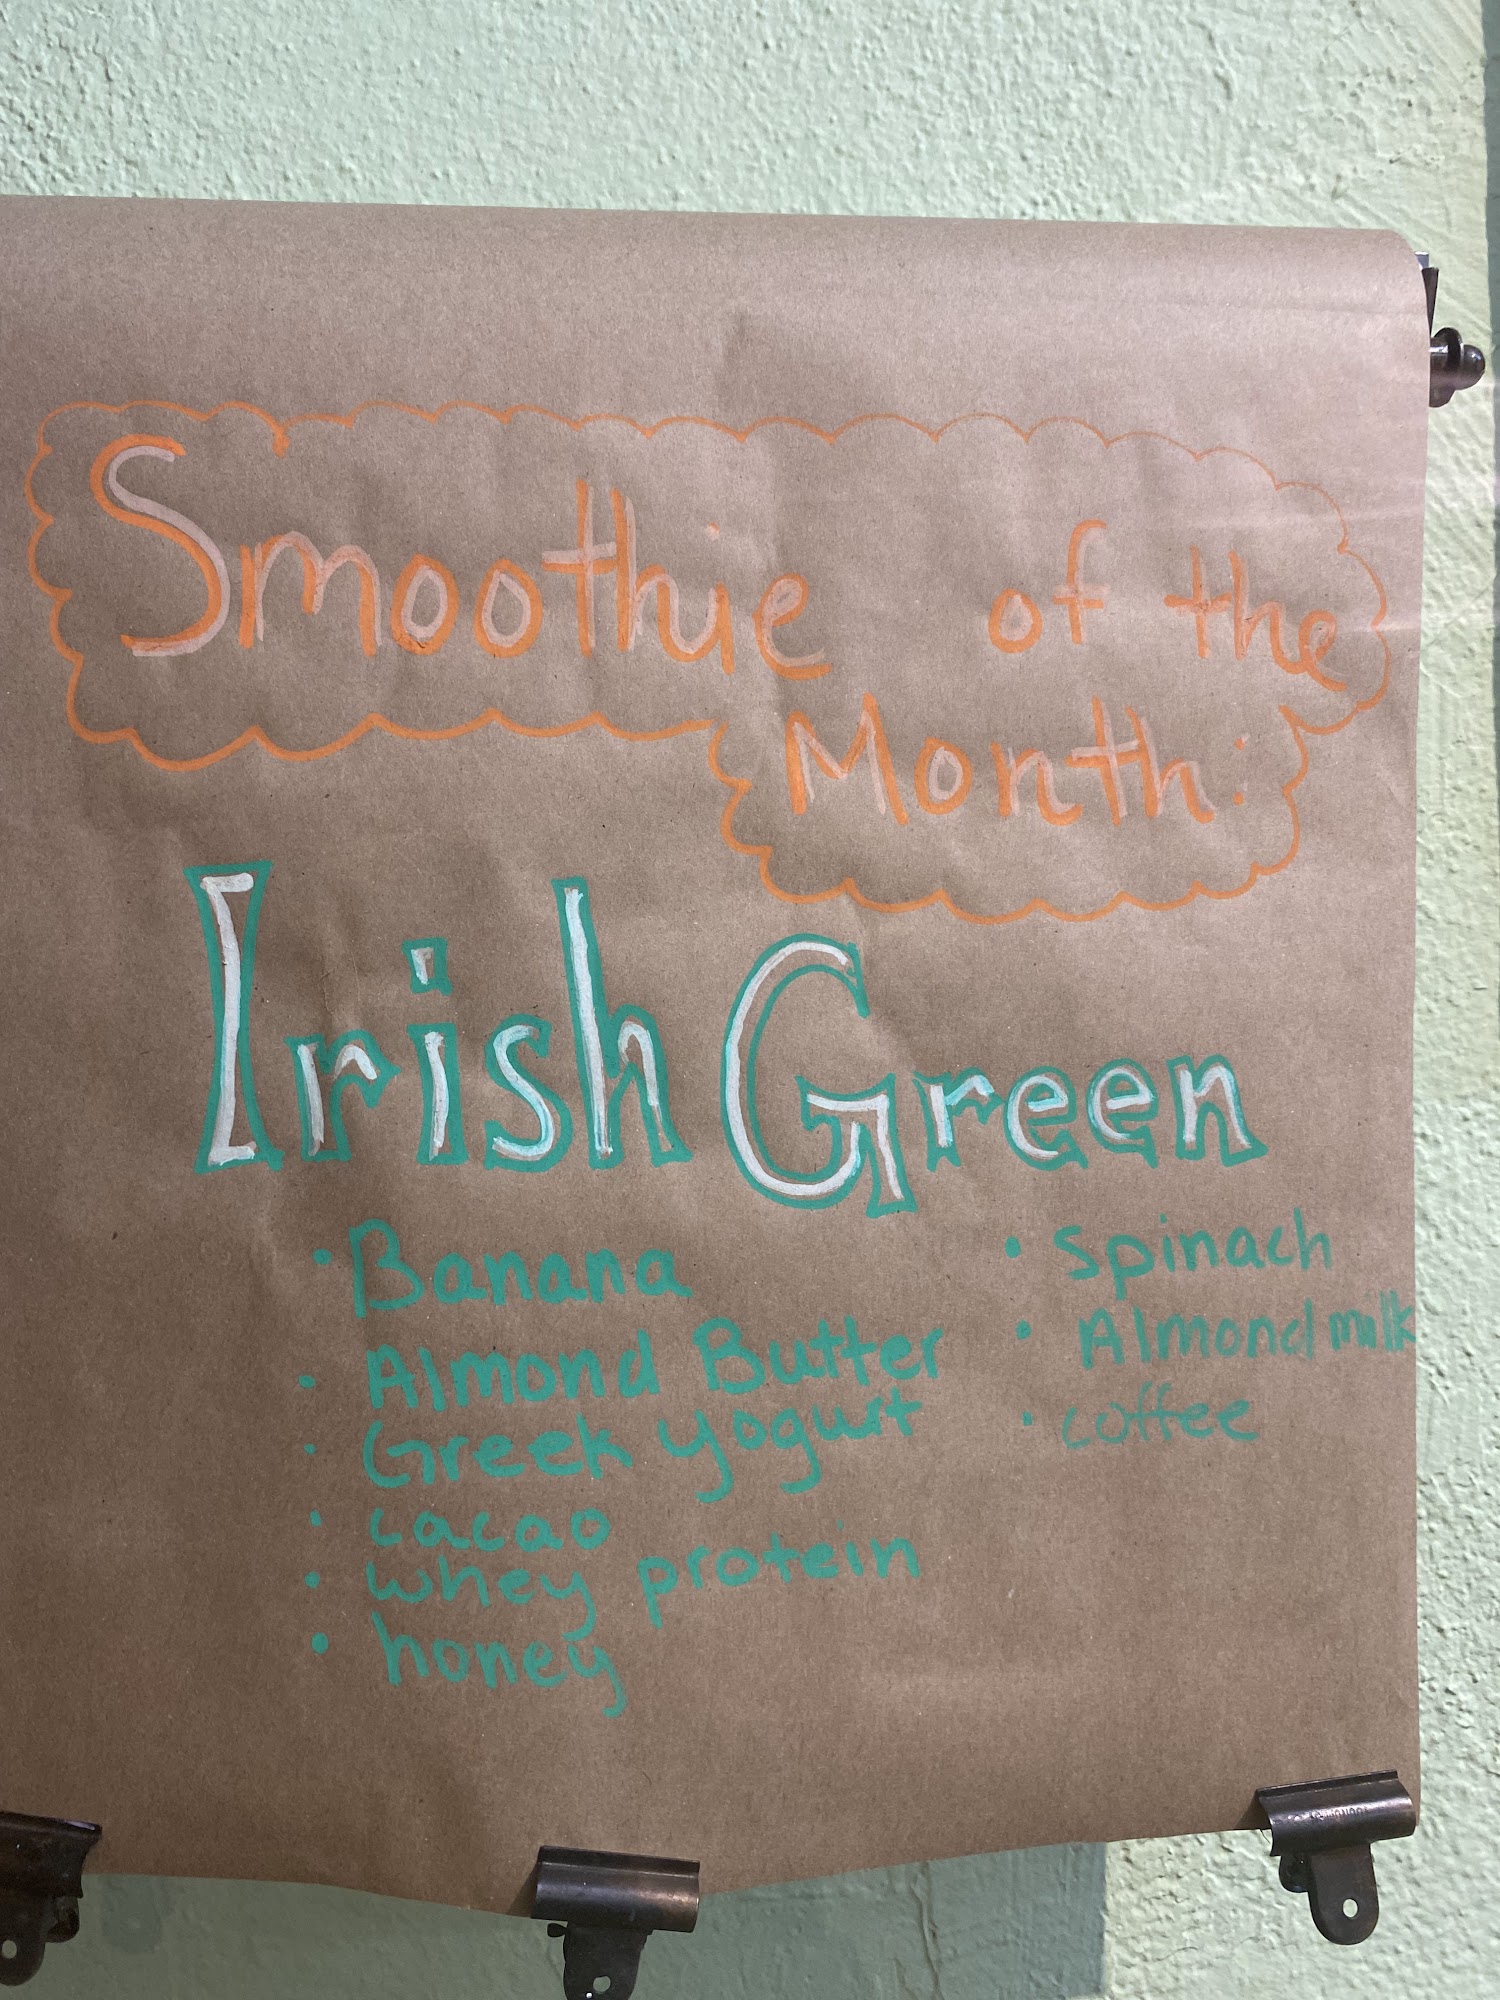 Smoothie of the
Month:
Irish Green
• Banana
• Almond Butter
• Greek yogurt
• cacao
• whey protein
• honey
• spinach
• Almond milk
• coffee